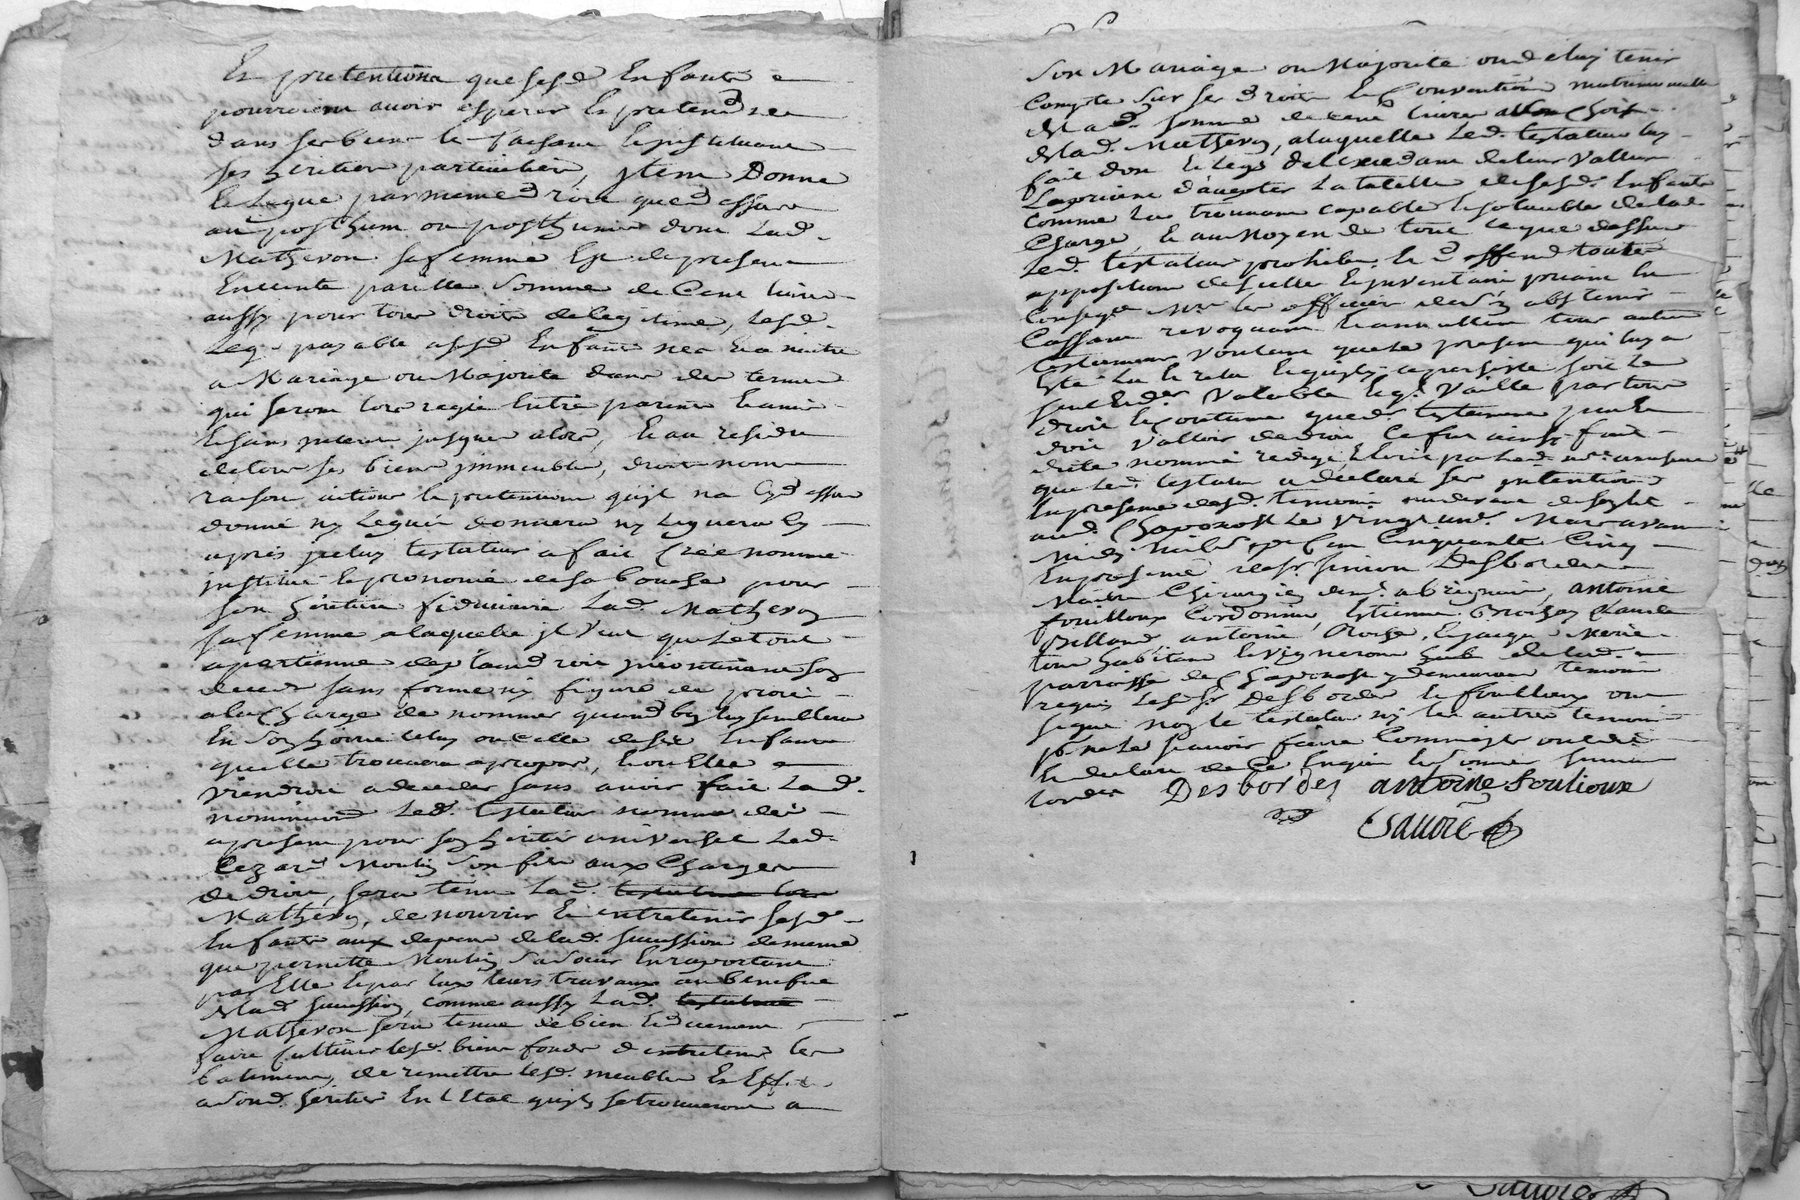 Et pretentions que sesd Enfants
pourroient avoir esperer Et pretendre
dans ses biens le faisant Et instituant
ses heritiers particuliers, jtem Donne
Et Legue par meme droit que dessus
au posthum ou posthume dont Lad.
Matheron sa femme Est de present
Enceinte pareille Somme de Cent livres
aussy pour tous droits de legitime, Lesd.
Legs payable a sesd Enfants nés Et a naitre
a Mariage ou Majorité dans des termes
qui seront lors reglé Entre parents Et amis
Et sans jnterest jusques alors, Et au residu
de tous ses biens jmmeubles, droits noms
raisons actions Et pretentions qu'jl na Cy dessus
donné ny Legué donnera ny Leguera Cy
apres jceluy testateur a fait Créé nommé
jnstitué Et prononcé de sa bouche pour
son heritiere fiduciaire Lad. Matheron
sa femme a laquelle jl veut que Le tout
apartienne de plain droit jncontinant son
deced sans forme ny figure de procé
a la Charge de nommer quand bon luy semblera
En son hoirie Celuy ou Celle de ses Enfants
quelle trouvera apropos, Et ou Elle
viendroit a deceder sans avoir fait Lad.
nomination Led. testateur nomme dés
apresent pour son heritier universel Led.
Cezard Moulin son fils aux Charges
de droit, sera tenue Lad. testatrice lors
Matheron, de nourrir Et entretenir sesd
Enfants aux depens de lad. succession de meme
que pernette Moulin sa soeur En raportant
par Elle Et par Eux leurs travaux au benefice
de lad succession, comme aussy Lad. testatrice
Matheron sera tenue de bien Et duement
faire Cultiver lesd. biens fonds d'entretenir les
batiments, de remettre lesd. meubles Et Effets
a sond. heritier En L'Etat qu'jls se trouveront a
son Mariage ou Majorité ou de luy tenir
Compte sur ses droits Et Convention matrimoniale
de la d. somme de cent livres a son Choix
de lad. Matheron, a laquelle Led. testateur luy
fait don Et legs de l'excedant de leur valleur
La priant d'accepter La tutelle de sesd. Enfants
comme La trouvant capable Et solvable de lad
Charge, Et au Moyen de tout ce que dessus
Led. testateur prohibe Et deffend toute
apposition de scellé Et jnventaire priant En
Conseqce Mrs les officiers de s'en abstenir
Cassant revoquant Et annullant tous autres
testaments voulant que Le present qui luy a
Esté Lu Et relu Et quoy jl a persisté soit Le
seul Et der. valable Et q. vaille par tous
droits Et coutume que der testament peut Et
doit valloir de droit, Ce fut ainsy fait
dicté nommé redigé Et Ecrit par Led. nore. a mesure
que Led. testateur a declaré ses jntentions
En presence desd. temoins
aud. Chaponost Le vingt un. Mars avant
Midy Mil sept Cent Cinquante Cinq
En presence de sr. simon Desbordes
Maitre Chirurgien demt. a brignais, antoine
fouilloux Cordonnier, Estienne Claude
Billand antoine Et jacque
tous habitans Et vignerons de lad.
parroisse de Chaponost y demeurant temoins
requis Lesd. sr. Desbordes Et fouilloux ont
signé non le testateur ny les autres temoins
pr. ne Le sçavoir faire

Desbordes antoine foulioux
Sauore